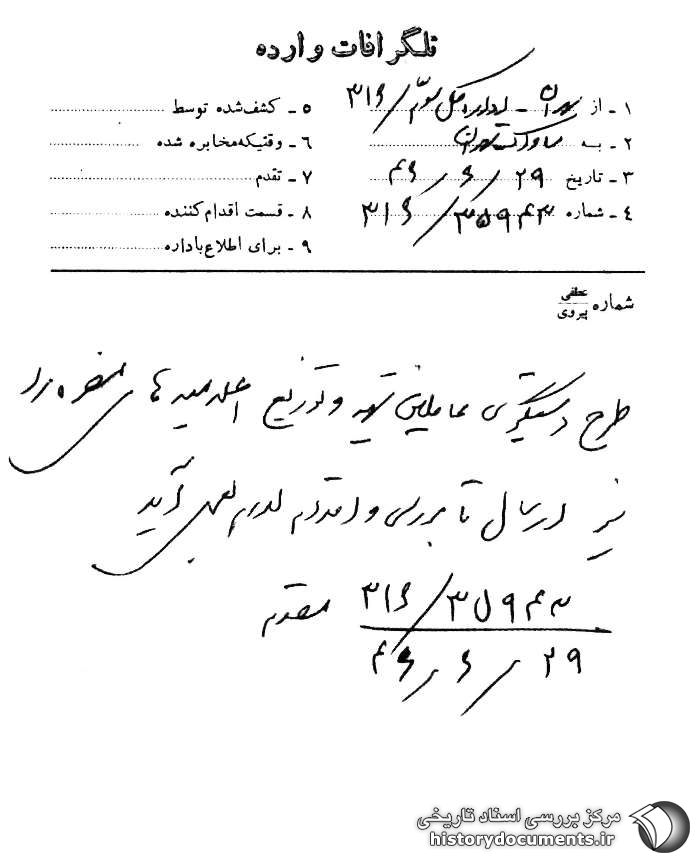 تلگرافات وارده
۱ - از تهران - اداره کل سوم/ ۳۱۶
۲ - به ساواک تهران
۳ - تاریخ ۲۹ / ۶ / ۴۶
۴ - شماره ۳۵۹۴۳ / ۳۱۶
۵ - کشف‌شده توسط
۶ - وقتیکه مخابره شده
۷ - تقدم
۸ - قسمت اقدام‌کننده
۹ - برای اطلاع باداره
شماره عطفی / پیروی
طرح دستگیری عاملین تهیه و توزیع اعلامیه های مضره را
نیز ارسال تا بررسی و اقدام لازم بعمل آید
۳۵۹۴۳ / ۳۱۶ مقدم
۲۹ / ۶ / ۴۶
مرکز بررسی اسناد تاریخی
historydocuments.ir